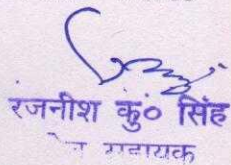 रजनीश कु० सिंह
सहायक